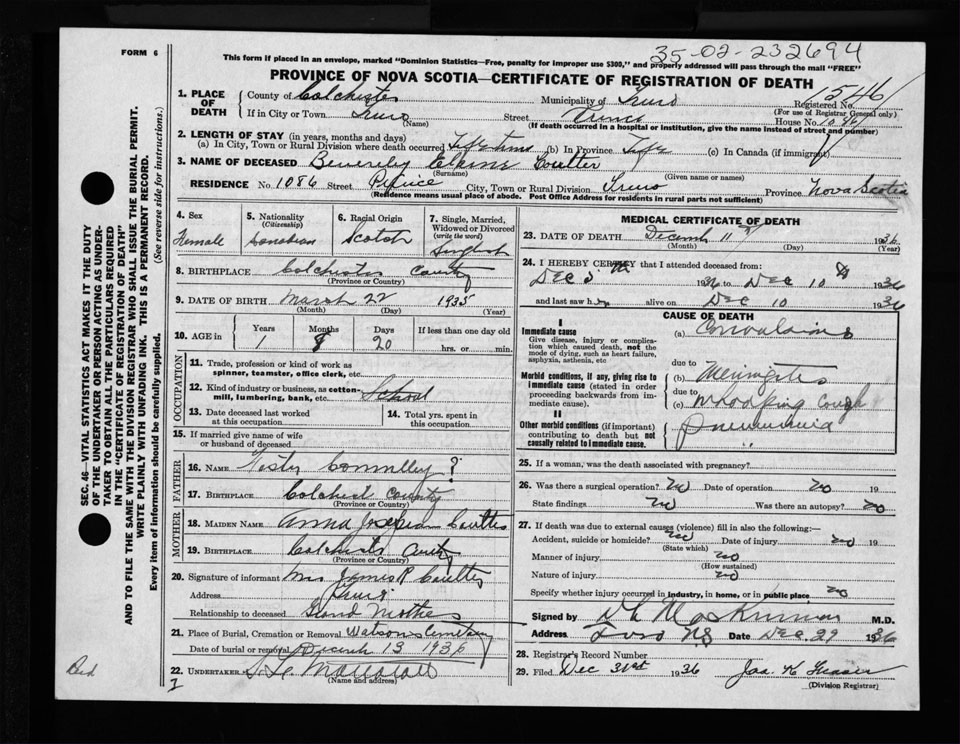 FORM 6
35-02-232694
This form if placed in an envelope, marked "Dominion Statistics—Free, penalty for improper use $300," and properly addressed will pass through the mail "FREE"
PROVINCE OF NOVA SCOTIA—CERTIFICATE OF REGISTRATION OF DEATH
1. PLACE OF DEATH
County of Colchester
Municipality of Truro
Registered No. 1546
(For use of Registrar General only)
If in City or Town Truro (Name)
Street Prince
House No. 1086
(If death occurred in a hospital or institution, give the name instead of street and number)
2. LENGTH OF STAY (in years, months and days)
(a) In City, Town or Rural Division where death occurred Life time (b) In Province Life (c) In Canada (if immigrant)
3. NAME OF DECEASED Beverely Elaine Coulter
(Surname) (Given name or names)
RESIDENCE No. 1086 Street Prince City, Town or Rural Division Truro Province Nova Scotia
(Residence means usual place of abode. Post Office Address for residents in rural parts not sufficient)
4. Sex
Female
5. Nationality
(Citizenship)
Canadian
6. Racial Origin
Scotch
7. Single, Married, Widowed or Divorced
(write the word)
8. BIRTHPLACE Colchester County
(Province or Country)
9. DATE OF BIRTH March 22 1935
(Month) (Day) (Year)
10. AGE in
Years Months Days If less than one day old
1 8 20 hrs. or min.
OCCUPATION
11. Trade, profession or kind of work as spinner, teamster, office clerk, etc.
12. Kind of industry or business, as cotton-mill, lumbering, bank, etc. School
13. Date deceased last worked at this occupation
14. Total yrs. spent in this occupation
15. If married give name of wife or husband of deceased
FATHER
16. NAME Connolley ?
17. BIRTHPLACE Colchest County
(Province or Country)
MOTHER
18. MAIDEN NAME Anna Coulter
19. BIRTHPLACE Colchester County
(Province or Country)
20. Signature of informant Mrs James P Coulter
Address Truro
Relationship to deceased Grand Mother
21. Place of Burial, Cremation or Removal Watsons Cemetery
Date of burial or removal December 13 1936
22. UNDERTAKER
(Name and address)
MEDICAL CERTIFICATE OF DEATH
23. DATE OF DEATH December 11 1936
(Month) (Day) (Year)
24. I HEREBY CERTIFY that I attended deceased from:
Dec 5th 1936 to Dec 10 1936
and last saw her alive on Dec 10 1936
CAUSE OF DEATH
I
Immediate cause
Give disease, injury or complication which caused death, not the mode of dying, such as heart failure, asphyxia, asthenia, etc
(a)
due to
Morbid conditions, if any, giving rise to immediate cause (stated in order proceeding backwards from immediate cause).
(b) Meningitis
due to
(c) Whooping Cough
II
Other morbid conditions (if important) contributing to death but not causally related to immediate cause.
Pneumonia
"
25. If a woman, was the death associated with pregnancy?
26. Was there a surgical operation? No Date of operation no 19
State findings No Was there an autopsy? no
27. If death was due to external causes (violence) fill in also the following:—
Accident, suicide or homicide? no Date of injury no 19
(State which)
Manner of injury no
(How sustained)
Nature of injury no
Specify whether injury occurred in industry, in home, or in public place no
Signed by M.D.
Address Truro NS Date Dec. 29 1936
28. Registrar's Record Number
29. Filed Dec 31st 1936 Jas. H Fraser
(Division Registrar)
SEC. 46—VITAL STATISTICS ACT MAKES IT THE DUTY
OF THE UNDERTAKER OR PERSON ACTING AS UNDER-
TAKER TO OBTAIN ALL THE PARTICULARS REQUIRED
IN THE "CERTIFICATE OF REGISTRATION OF DEATH"
AND TO FILE THE SAME WITH THE DIVISION REGISTRAR WHO SHALL ISSUE THE BURIAL PERMIT.
WRITE PLAINLY WITH UNFADING INK. THIS IS A PERMANENT RECORD.
Every item of information should be carefully supplied. (See reverse side for instructions.)